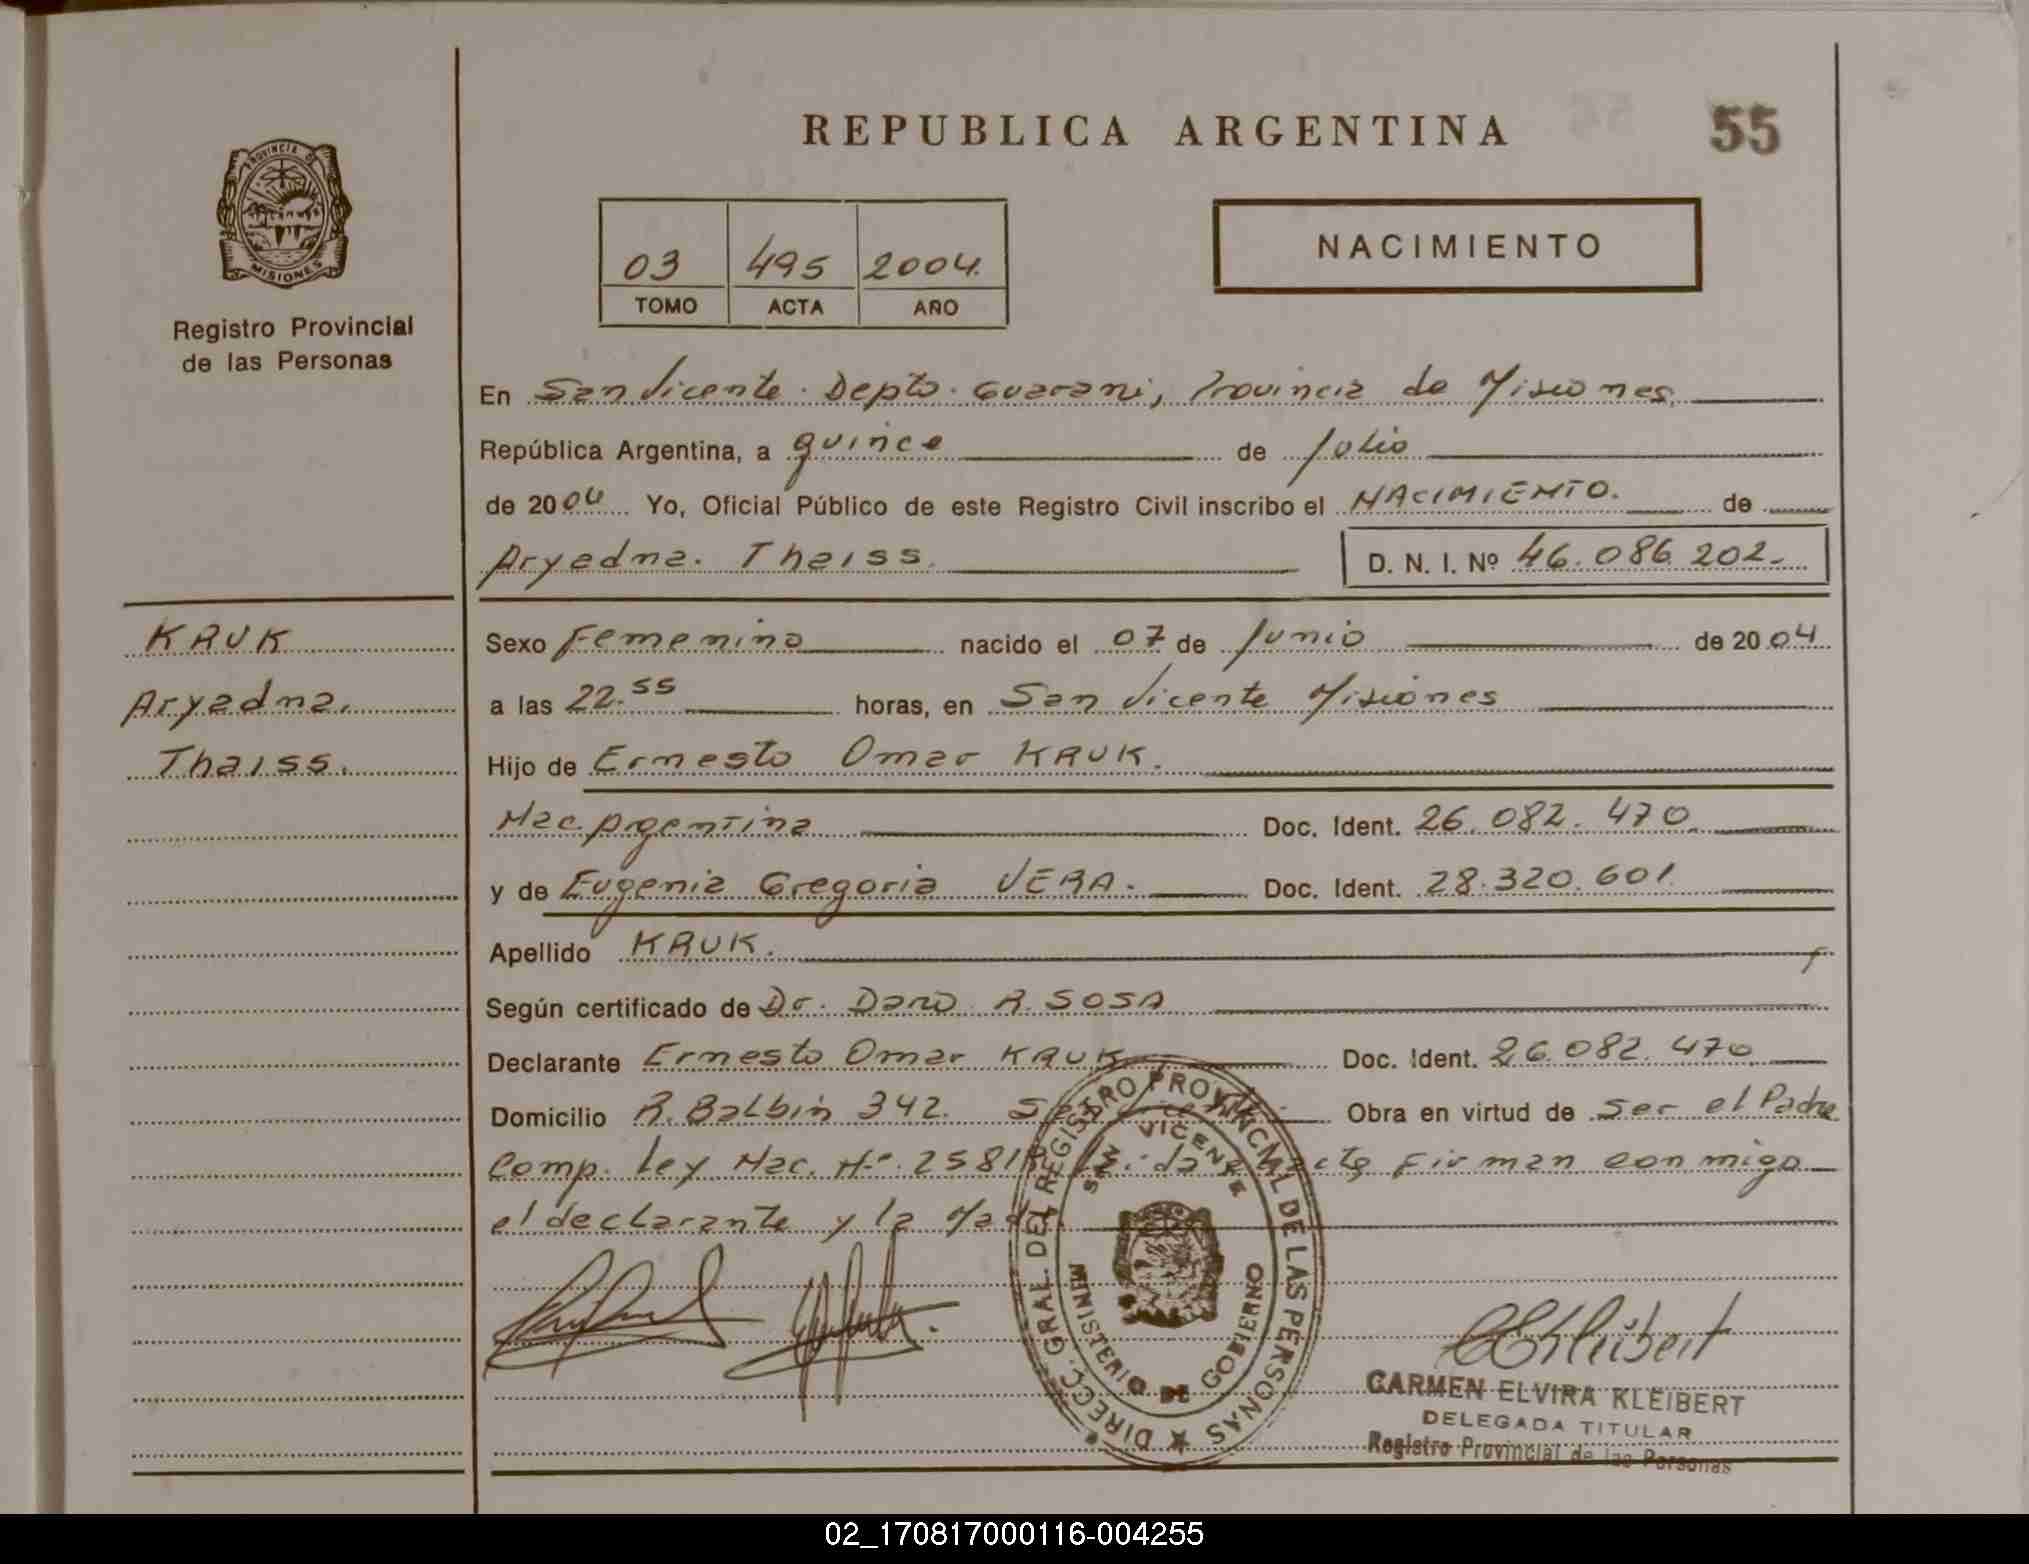 REPUBLICA ARGENTINA
55
PROVINCIA DE
MISIONES
Registro Provincial
de las Personas
03 495 2004.
TOMO ACTA AÑO
NACIMIENTO
En San Vicente. Depto. Guarani, Provincia de Misiones
República Argentina, a quince de Julio
de 2004 Yo, Oficial Público de este Registro Civil inscribo el NACIMIENTO. de
Aryadna. Thaiss. D. N. I. Nº 46.086.202-
KRUK
Aryadna.
Thaiss.
Sexo Femenino nacido el 07 de Junio de 2004
a las 22.55 horas, en San Vicente Misiones
Hijo de Ernesto Omar KRUK.
Nac. Argentina Doc. Ident. 26.082.470
y de Eugenia Gregoria VERA. Doc. Ident. 28.320.601
Apellido KRUK.
Según certificado de Dr. R. SOSA
Declarante Ernesto Omar KRUK Doc. Ident. 26.082.470
Domicilio R. Balbin 342. Obra en virtud de Ser el Padre
Comp. Ley Nac. Nº 25818 Firman conmigo
el declarante y la
DIRECC. GRAL. DEL REGISTRO PROVINCIAL DE LAS PERSONAS
SAN VICENTE
MINISTERIO DE GOBIERNO
CARMEN ELVIRA KLEIBERT
DELEGADA TITULAR
Registro Provincial de las Personas
02_170817000116-004255